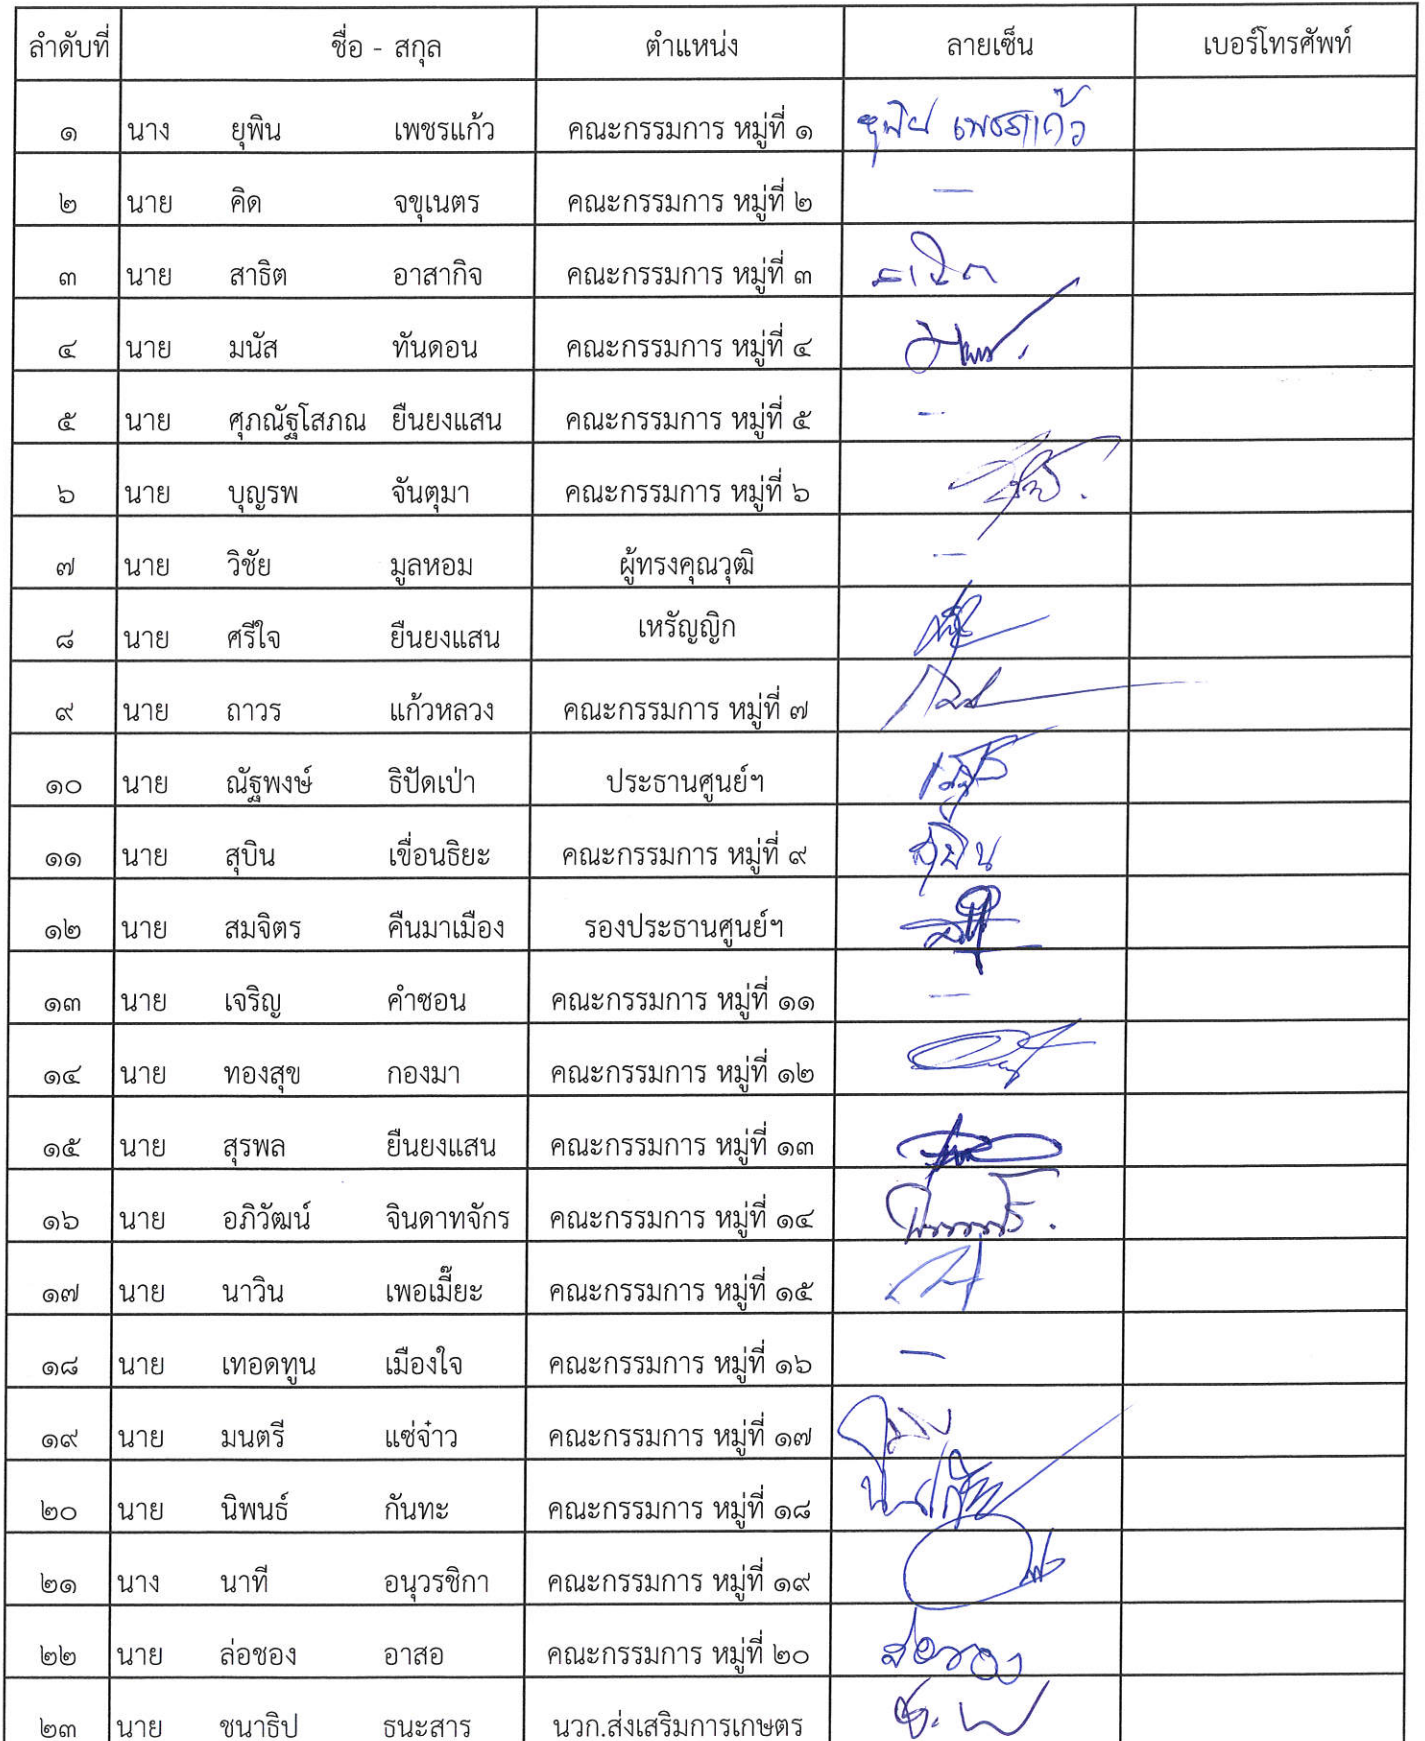 ลำดับที่ ชื่อ - สกุล ตำแหน่ง ลายเซ็น เบอร์โทรศัพท์
๑ นาง ยุพิน เพชรแก้ว คณะกรรมการ หมู่ที่ ๑ ยุพิน เพชรแก้ว
๒ นาย คิด จขุเนตร คณะกรรมการ หมู่ที่ ๒ —
๓ นาย สาธิต อาสากิจ คณะกรรมการ หมู่ที่ ๓ สาธิต
๔ นาย มนัส ทันดอน คณะกรรมการ หมู่ที่ ๔
๕ นาย ศุภณัฐโสภณ ยืนยงแสน คณะกรรมการ หมู่ที่ ๕ -
๖ นาย บุญรพ จันตุมา คณะกรรมการ หมู่ที่ ๖
๗ นาย วิชัย มูลหอม ผู้ทรงคุณวุฒิ —
๘ นาย ศรีใจ ยืนยงแสน เหรัญญิก
๙ นาย ถาวร แก้วหลวง คณะกรรมการ หมู่ที่ ๗
๑๐ นาย ณัฐพงษ์ ธิปัดเป่า ประธานศูนย์ฯ
๑๑ นาย สุบิน เขื่อนธิยะ คณะกรรมการ หมู่ที่ ๙ สุบิน
๑๒ นาย สมจิตร คืนมาเมือง รองประธานศูนย์ฯ
๑๓ นาย เจริญ คำซอน คณะกรรมการ หมู่ที่ ๑๑ —
๑๔ นาย ทองสุข กองมา คณะกรรมการ หมู่ที่ ๑๒
๑๕ นาย สุรพล ยืนยงแสน คณะกรรมการ หมู่ที่ ๑๓
๑๖ นาย อภิวัฒน์ จินดาทจักร คณะกรรมการ หมู่ที่ ๑๔
๑๗ นาย นาวิน เพอเมี๊ยะ คณะกรรมการ หมู่ที่ ๑๕
๑๘ นาย เทอดทูน เมืองใจ คณะกรรมการ หมู่ที่ ๑๖ —
๑๙ นาย มนตรี แซ่จ๋าว คณะกรรมการ หมู่ที่ ๑๗
๒๐ นาย นิพนธ์ กันทะ คณะกรรมการ หมู่ที่ ๑๘
๒๑ นาง นาที อนุวรชิกา คณะกรรมการ หมู่ที่ ๑๙
๒๒ นาย ล่อชอง อาสอ คณะกรรมการ หมู่ที่ ๒๐ ล่อชอง
๒๓ นาย ชนาธิป ธนะสาร นวก.ส่งเสริมการเกษตร